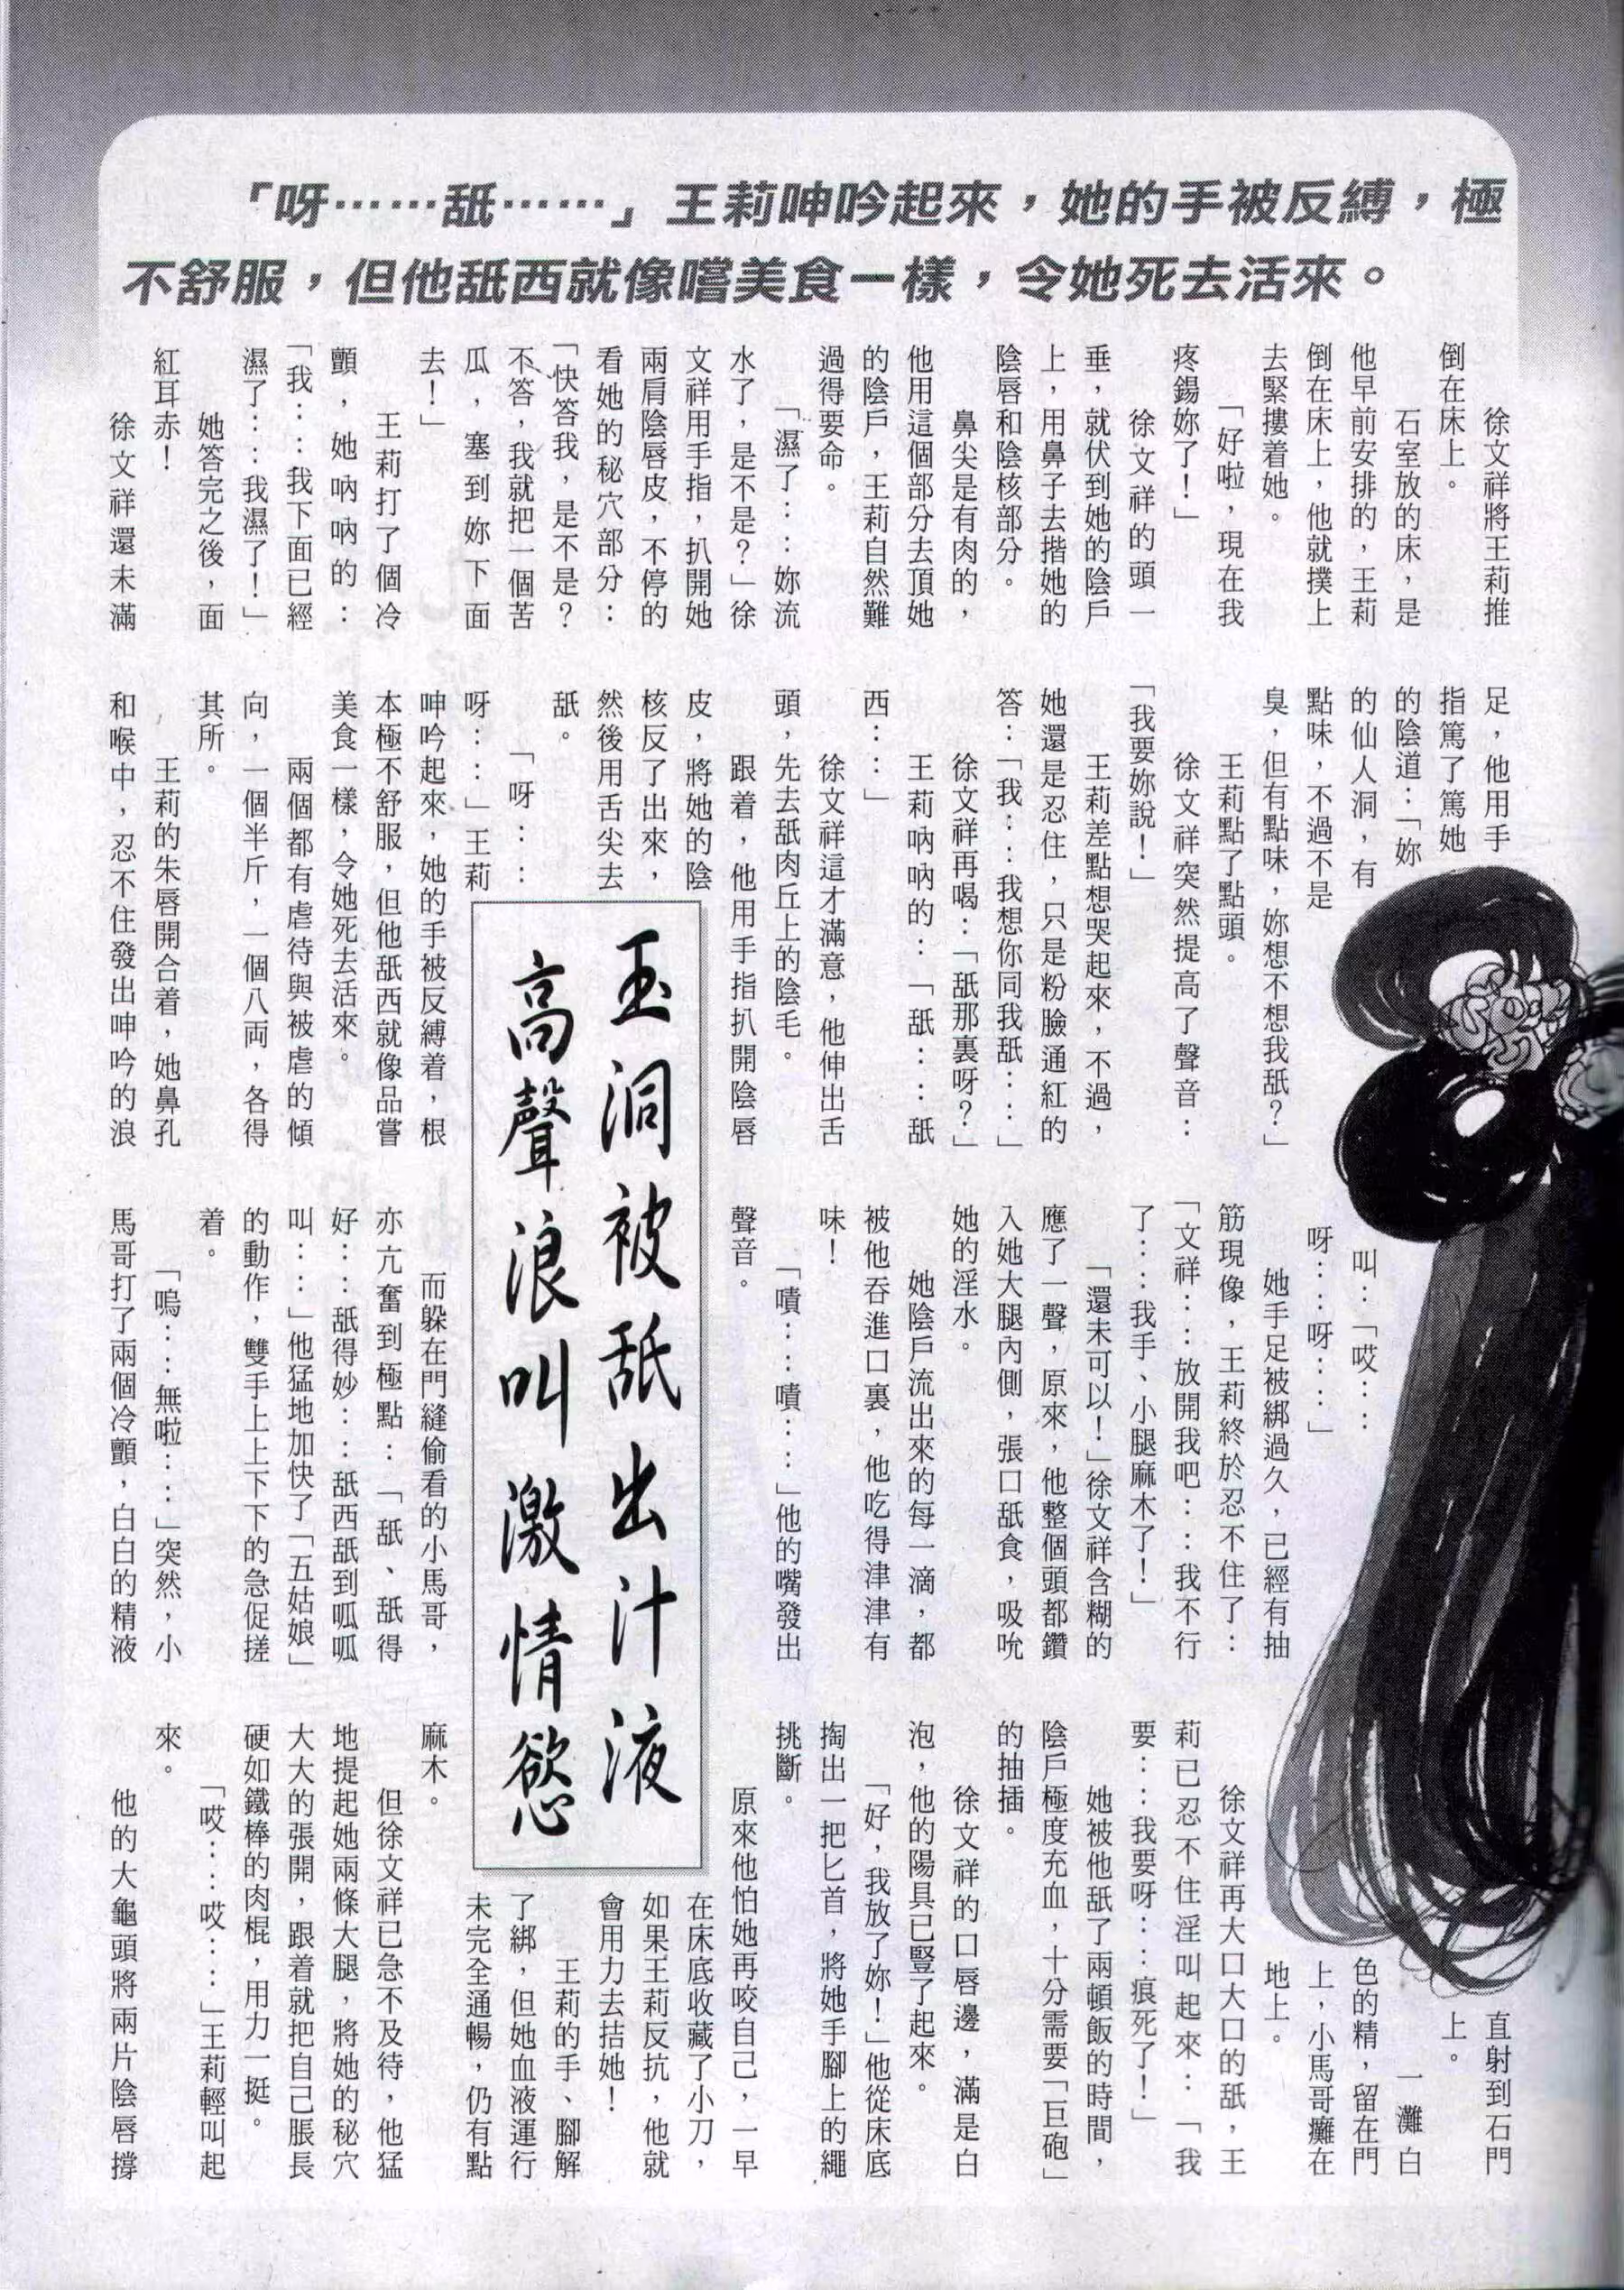 「呀……舐……」王莉呻吟起來，她的手被反縛，極
不舒服，但他舐西就像嚐美食一樣，令她死去活來。
徐文祥將王莉推
倒在床上。
石室放的床，是
他早前安排的，王莉
倒在床上，他就撲上
去緊摟着她。
「好啦，現在我
疼錫妳了！」
徐文祥的頭一
垂，就伏到她的陰戶
上，用鼻子去揩她的
陰唇和陰核部分。
鼻尖是有肉的，
他用這個部分去頂她
的陰戶，王莉自然難
過得要命。
「濕了……妳流
水了，是不是？」徐
文祥用手指，扒開她
兩肩陰唇皮，不停的
看她的秘穴部分：
「快答我，是不是？
不答，我就把一個苦
瓜，塞到妳下面
去！」
王莉打了個冷
顫，她吶吶的：
「我……我下面已經
濕了……我濕了！」
她答完之後，面
紅耳赤！
徐文祥還未滿
足，他用手
指篤了篤她
的陰道：「妳
的仙人洞，有
點味，不過不是
臭，但有點味，妳想不想我舐？」
王莉點了點頭。
徐文祥突然提高了聲音：
「我要妳說！」
王莉差點想哭起來，不過，
她還是忍住，只是粉臉通紅的
答：「我……我想你同我舐……」
徐文祥再喝：「舐那裏呀？」
王莉吶吶的：「舐……舐
西……」
徐文祥這才滿意，他伸出舌
頭，先去舐肉丘上的陰毛。
跟着，他用手指扒開陰唇
皮，將她的陰
核反了出來，
然後用舌尖去
舐。
「呀……
呀……」王莉
呻吟起來，她的手被反縛着，根
本極不舒服，但他舐西就像品嘗
美食一樣，令她死去活來。
兩個都有虐待與被虐的傾
向，一個半斤，一個八両，各得
其所。
王莉的朱唇開合着，她鼻孔
和喉中，忍不住發出呻吟的浪
玉洞被舐出汁液
高聲浪叫激情慾
叫：「哎……
呀……呀……」
她手足被綁過久，已經有抽
筋現像，王莉終於忍不住了：
「文祥……放開我吧……我不行
了……我手、小腿麻木了！」
「還未可以！」徐文祥含糊的
應了一聲，原來，他整個頭都鑽
入她大腿內側，張口舐食，吸吮
她的淫水。
她陰戶流出來的每一滴，都
被他吞進口裏，他吃得津津有
味！
「嘖……嘖……」他的嘴發出
聲音。
而躲在門縫偷看的小馬哥，
亦亢奮到極點：「舐、舐得
好……舐得妙……舐西舐到呱呱
叫……」他猛地加快了「五姑娘」
的動作，雙手上上下下的急促搓
着。
「嗚……無啦……」突然，小
馬哥打了兩個冷顫，白白的精液
直射到石門
上。
一灘白
色的精，留在門
上，小馬哥癱在
地上。
徐文祥再大口大口的舐，王
莉已忍不住淫叫起來：「我
要……我要呀……痕死了！」
她被他舐了兩頓飯的時間，
陰戶極度充血，十分需要「巨砲」
的抽插。
徐文祥的口唇邊，滿是白
泡，他的陽具已豎了起來。
「好，我放了妳！」他從床底
掏出一把匕首，將她手腳上的繩
挑斷。
原來他怕她再咬自己，一早
在床底收藏了小刀，
如果王莉反抗，他就
會用力去拮她！
王莉的手、腳解
了綁，但她血液運行
未完全通暢，仍有點
麻木。
但徐文祥已急不及待，他猛
地提起她兩條大腿，將她的秘穴
大大的張開，跟着就把自己脹長
硬如鐵棒的肉棍，用力一挺。
「哎……哎……」王莉輕叫起
來。
他的大龜頭將兩片陰唇撐